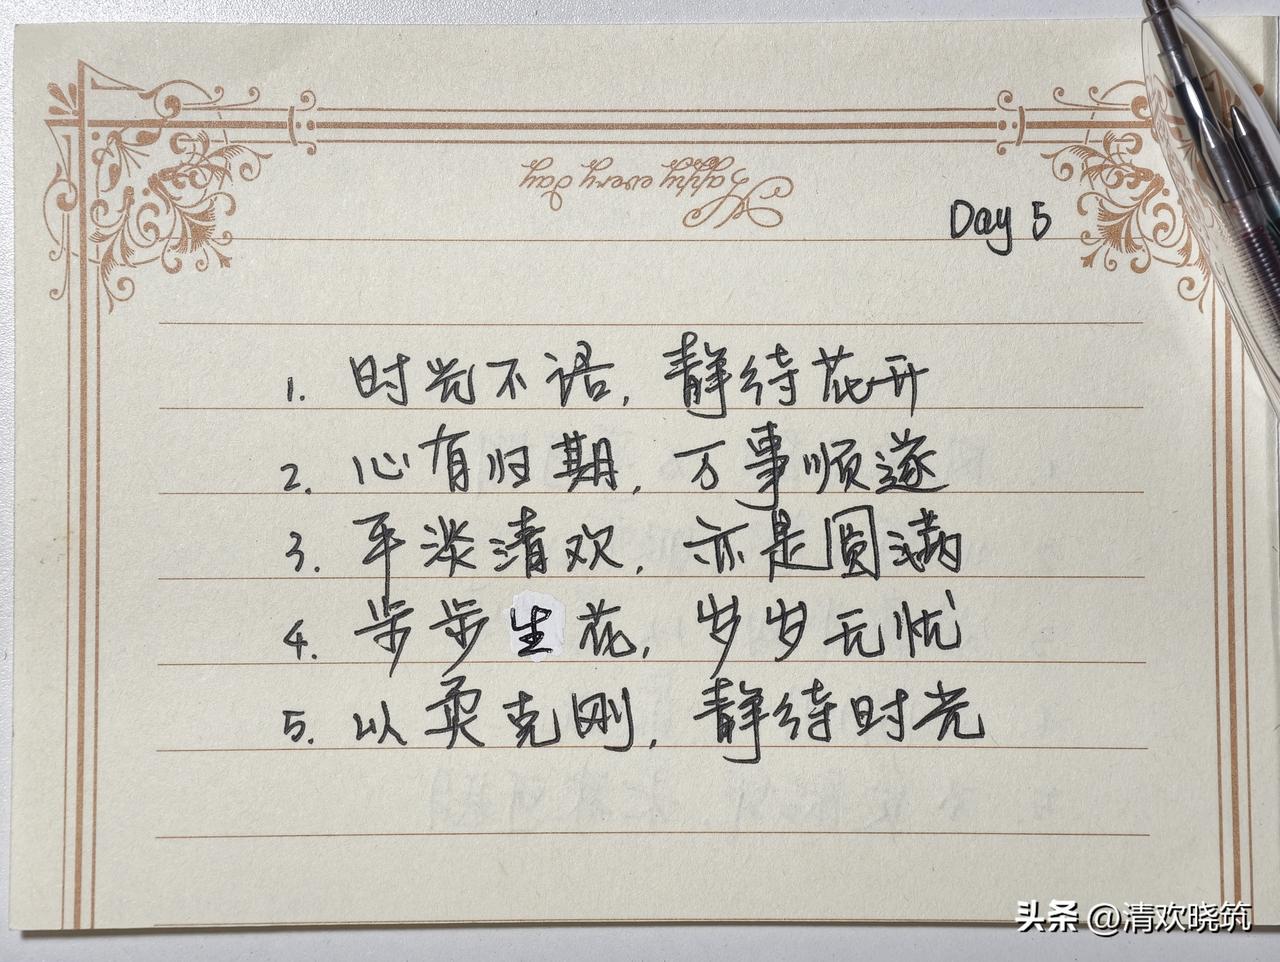 Happy every day
Day 5
1. 时光不语,静待花开
2. 心有归期,万事顺遂
3. 平淡清欢,亦是圆满
4. 步步生花,岁岁无忧
5. 以柔克刚,静待时光
头条 @清欢晓筑